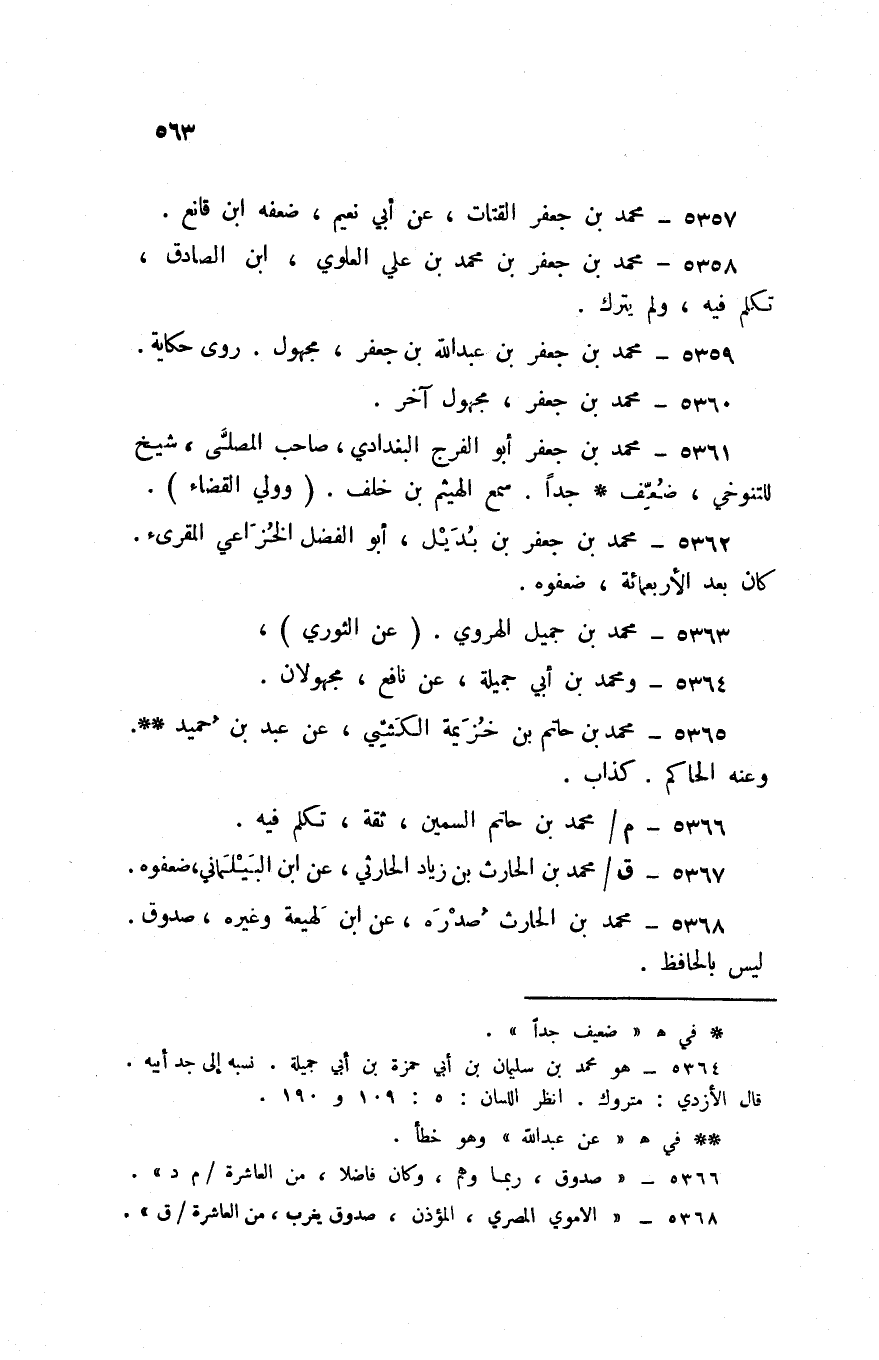 ٥٦٣
٥٣٥٧ ـ محمد بن جعفر القتات ، عن أبي نعيم ، ضعفه ابن قانع .
٥٣٥٨ ـ محمد بن جعفر بن محمد بن علي العلوي ، ابن الصادق ،
تكلم فيه ، ولم يترك .
٥٣٥٩ ـ محمد بن جعفر بن عبدالله بن جعفر ، مجهول . روى حكاية .
٥٣٦٠ ـ محمد بن جعفر ، مجهول آخر .
٥٣٦١ ـ محمد بن جعفر أبو الفرج البغدادي ، صاحب المصلَّى ، شيخ
للتنوخي ، ضُعِّف * جداً . سمع الهيثم بن خلف . ( وولي القضاء ) .
٥٣٦٢ ـ محمد بن جعفر بن بُدَيْل ، أبو الفضل الخُزَاعي المقرىء .
كان بعد الأربعمائة ، ضعفوه .
٥٣٦٣ ـ محمد بن جميل الهروي . ( عن الثوري ) ،
٥٣٦٤ ـ ومحمد بن أبي جميلة ، عن نافع ، مجهولان .
٥٣٦٥ ـ محمد بن حاتم بن خُزَيمة الكَشّيّ ، عن عبد بن حُميد **.
وعنه الحاكم . كذاب .
٥٣٦٦ ـ م/ محمد بن حاتم السمين ، ثقة ، تكلم فيه .
٥٣٦٧ ـ ق/ محمد بن الحارث بن زياد الحارثي ، عن ابن البَيْلَماني، ضعفوه .
٥٣٦٨ ـ محمد بن الحارث صُدْرَه ، عن ابن لَهيعة وغيره ، صدوق .
ليس بالحافظ .
* في ه « ضعيف جداً » .
٥٣٦٤ ـ هو محمد بن سليمان بن أبي حمزة بن أبي جميلة . نسبه إلى جد أبيه .
قال الأزدي : متروك . انظر اللسان : ٥ : ١٠٩ و ١٩٠ .
** في ه « عن عبدالله » وهو خطأ .
٥٣٦٦ ـ « صدوق ، ربما وهم ، وكان فاضلا ، من العاشرة / م د » .
٥٣٦٨ ـ « الاموي المصري ، المؤذن ، صدوق يغرب ، من العاشرة / ق » .